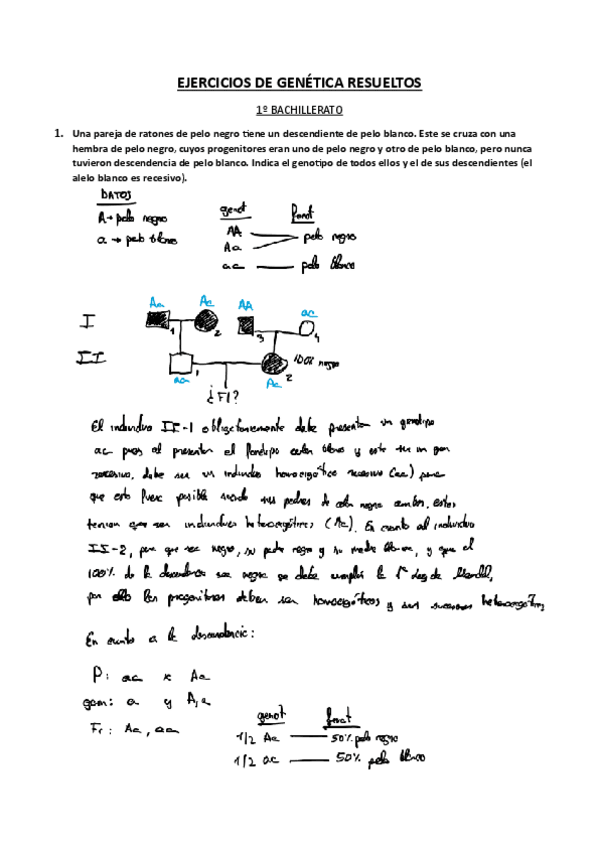 EJERCICIOS DE GENÉTICA RESUELTOS
1º BACHILLERATO
1. Una pareja de ratones de pelo negro tiene un descendiente de pelo blanco. Este se cruza con una
hembra de pelo negro, cuyos progenitores eran uno de pelo negro y otro de pelo blanco, pero nunca
tuvieron descendencia de pelo blanco. Indica el genotipo de todos ellos y el de sus descendientes (el
alelo blanco es recesivo).
DATOS genot fenot
A→ pelo negro AA
pelo negro
a → pelo blanco Aa
aa pelo blanco
Aa Aa AA aa
I 1 2 3 4
II 1 2 100% negro
aa Aa
¿F1?
El individuo II-1 obligatoriamente debe presentar un genotipo
aa pues al presentar el fenotipo color blanco y este ser un gen
recesivo, debe ser un individuo homocigótico recesivo (aa) para
que esto fuera posible siendo sus padres de color negro ambos, estos
tenían que ser individuos heterocigóticos (Aa). En cuanto al individuo
II-2, para que sea negro, su padre negro y su madre blanca, y que el
100% de la descendencia sea negra se debe cumplir la 1ª ley de Mendel,
por ello los progenitores deben ser homocigóticos y sus sucesores heterocigóticos
En cuanto a la descendencia:
P: aa x Aa
gam: a y A, a
F1: Aa, aa genot fenot
1/2 Aa 50% pelo negro
1/2 aa 50% pelo blanco